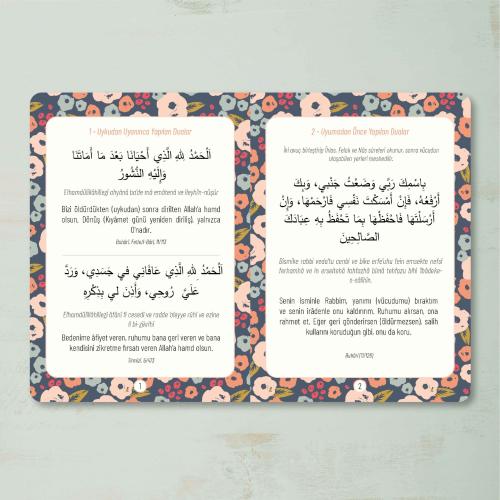 1 - Uykudan Uyanınca Yapılan Dualar
اَلْحَمْدُ لِلّٰهِ الَّذِي أَحْيَانَا بَعْدَ مَا أَمَاتَنَا
وَإِلَيْهِ النُّشُورُ
Elhamdülillâhillezî ahyânâ ba'de mâ emâtenâ ve ileyhi'n-nüşûr
Bizi öldürdükten (uykudan) sonra dirilten Allah'a hamd
olsun. Dönüş (Kıyâmet günü yeniden diriliş), yalnızca
O'nadır.
Buhârî, Fethu'l-Bârî, 11/113
اَلْحَمْدُ لِلّٰهِ الَّذِي عَافَانِي فِي جَسَدِي، وَرَدَّ
عَلَيَّ رُوحِي، وَأَذِنَ لِي بِذِكْرِهِ
Elhamdülillâhillezî âfânî fî cesedî ve radde aleyye rûhî ve ezine
lî bi-zikrihî
Bedenime âfiyet veren, ruhumu bana geri veren ve bana
kendisini zikretme fırsatı veren Allah'a hamd olsun.
Tirmizî, 5/473
1
2 - Uyumadan Önce Yapılan Dualar
İki avuç birleştirip İhlas, Felak ve Nâs sûreleri okunur, sonra vücudun
ulaşabilen yerleri meshedilir.
بِاسْمِكَ رَبِّي وَضَعْتُ جَنْبِي، وَبِكَ
أَرْفَعُهُ، فَإِنْ أَمْسَكْتَ نَفْسِي فَارْحَمْهَا، وَإِنْ
أَرْسَلْتَهَا فَاحْفَظْهَا بِمَا تَحْفَظُ بِهِ عِبَادَكَ
الصَّالِحِينَ
Bismike rabbî veda'tu canbî ve bike erfe'uhu fein emsekte nefsî
ferhamhâ ve in erseltehâ fahfazhâ bimâ tahfazu bihî 'ibâdeke-
s-sâlihîn.
Senin isminle Rabbim, yanımı (vücudumu) bıraktım
ve senin irâdenle onu kaldırırım. Ruhumu alırsan, ona
rahmet et. Eğer geri gönderirsen (öldürmezsen), salih
kullarını koruduğun gibi, onu da koru.
Buhârî (11/126)
2